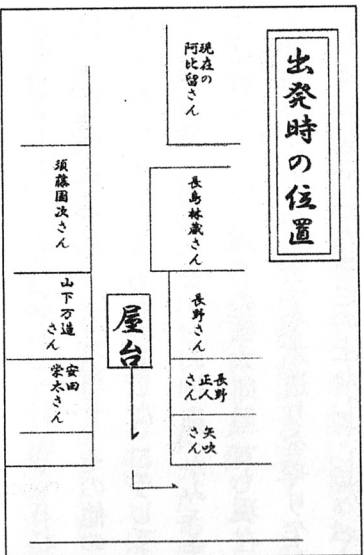 出発時の位置
現在の
阿比留さん
長島林蔵さん
長野さん
長野
正人
さん
矢吹
さん
屋台
須藤国次さん
山下万造
さん
安田
栄太さん